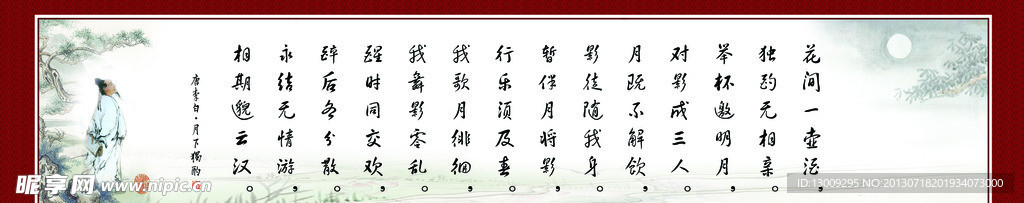 花间一壶酒，
独酌无相亲。
举杯邀明月，
对影成三人。
月既不解饮，
影徒随我身。
暂伴月将影，
行乐须及春。
我歌月徘徊，
我舞影零乱。
醒时同交欢，
醉后各分散。
永结无情游，
相期邈云汉。
唐李白·月下独酌
昵享网 www.nipic.cn
ID:13009295 NO:20130718201934073000